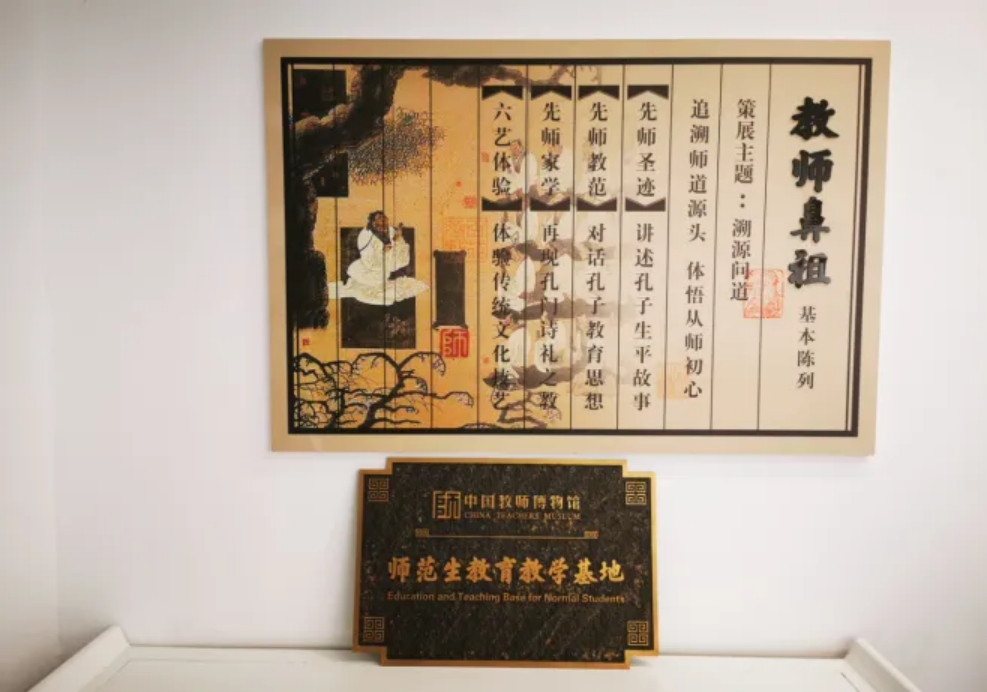 教师鼻祖 基本陈列
策展主题：溯源问道
追溯师道源头 体悟从师初心
先师圣迹 讲述孔子生平故事
先师教范 对话孔子教育思想
先师家学 再现孔门诗礼之教
六艺体验 体验传统文化技艺
師
師 中国教师博物馆
CHINA TEACHERS MUSEUM
师范生教育教学基地
Education and Teaching Base for Normal Students